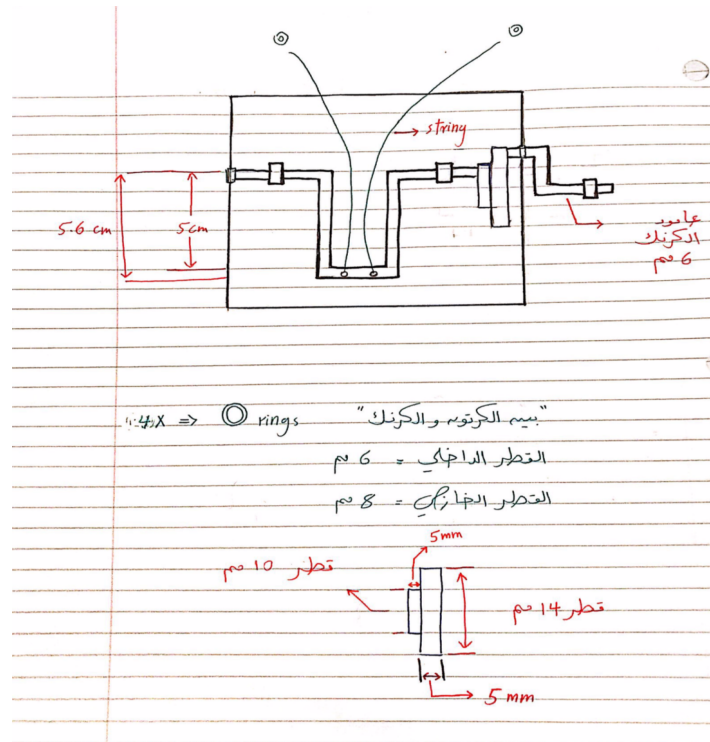 string
5-6 cm
5cm
عامود
الكرنك
6 مم
4X => rings "بين الكرتون والكرنك"
القطر الداخلي = 6 مم
القطر الخارجي = 8 مم
5mm
قطر 10 مم
قطر 14 مم
5 mm